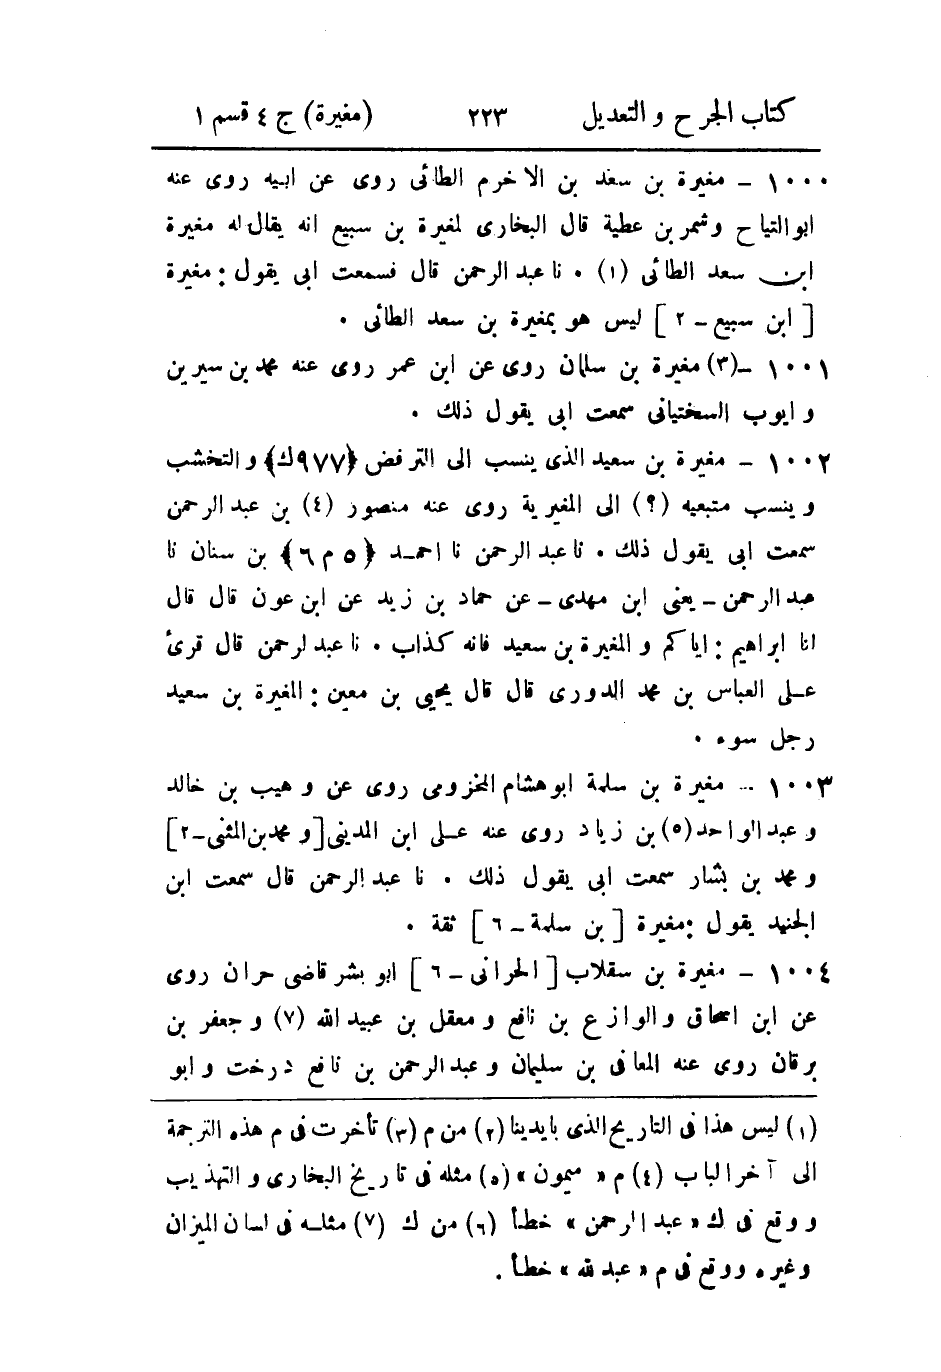 كتاب الجرح والتعديل ٢٢٣ (مغيرة) ج ٤ قسم ١
١٠٠٠ - مغيرة بن سعد بن الاخرم الطائى روى عن ابيه روى عنه
ابو التياح وشمر بن عطية قال البخارى لمغيرة بن سبيع انه يقال له مغيرة
ابن سعد الطائى (١) ٠ نا عبد الرحمن قال فسمعت ابى يقول: مغيرة
[ ابن سبيع - ٢ ] ليس هو بمغيرة بن سعد الطائى ٠
١٠٠١ -(٣) مغيرة بن سلمان روى عن ابن عمر روى عنه محمد بن سيرين
و ايوب السختيانى سمعت ابى يقول ذلك ٠
١٠٠٢ - مغيرة بن سعيد الذى ينسب الى الترفض ﴿٩٧٧ك﴾ و التخشب
و ينسب متبعيه (؟) الى المغيرية روى عنه منصور (٤) بن عبد الرحمن
سمعت ابى يقول ذلك ٠ نا عبد الرحمن نا احمد ﴿٥ م ٦﴾ بن سنان نا
عبد الرحمن - يعنى ابن مهدى - عن حماد بن زيد عن ابن عون قال قال
انا ابراهيم: اياكم و المغيرة بن سعيد فانه كذاب ٠ نا عبد لرحمن قال قرئ
على العباس بن محمد الدورى قال قال يحيى بن معين: المغيرة بن سعيد
رجل سوء ٠
١٠٠٣ - مغيرة بن سلمة ابو هشام المخزومى روى عن وهيب بن خالد
و عبد الواحد (٥) بن زياد روى عنه على ابن المدينى [و محمد بن المثنى-٢]
و محمد بن بشار سمعت ابى يقول ذلك ٠ نا عبد الرحمن قال سمعت ابن
الجنيد يقول: مغيرة [ بن سلمة - ٦ ] ثقة ٠
١٠٠٤ - مغيرة بن سقلاب [ الحرانى - ٦ ] ابو بشر قاضى حران روى
عن ابن اسحاق و الوازع بن نافع و معقل بن عبيد الله (٧) و جعفر بن
برقان روى عنه المعافى بن سليمان و عبد الرحمن بن نافع درخت و ابو
(١) ليس هذا فى التاريخ الذى بايدينا (٢) من م (٣) تأخرت فى م هذه الترجمة
الى آخر الباب (٤) م « ميمون » (٥) مثله فى تاريخ البخارى و التهذيب
و وقع فى ك « عبد الرحمن » خطأ (٦) من ك (٧) مثله فى لسان الميزان
وغيره ووقع فى م « عبد لله » خطأ.